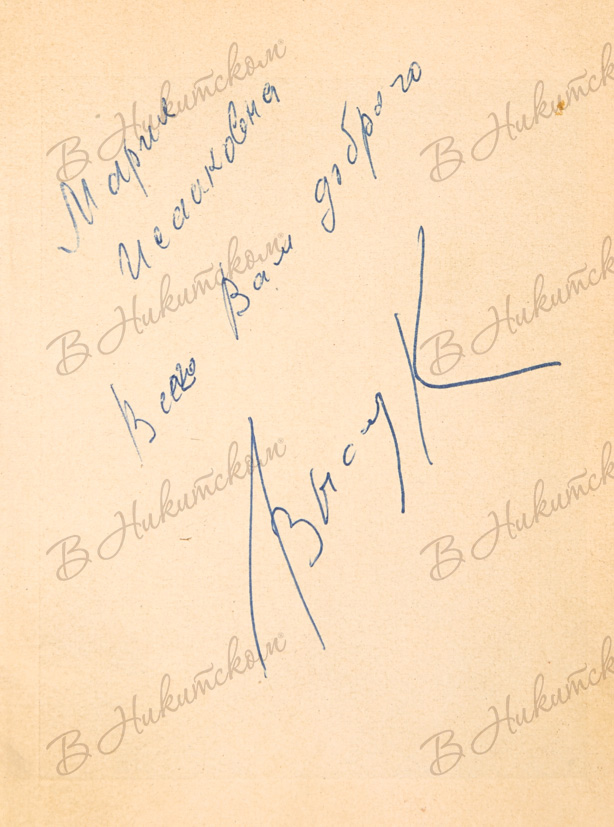 Мария
Исааковна
Всего Вам доброго
В Никитском
В Никитском
В Никитском
В Никитском
В Никитском
В Никитском
В Никитском
В Никитском